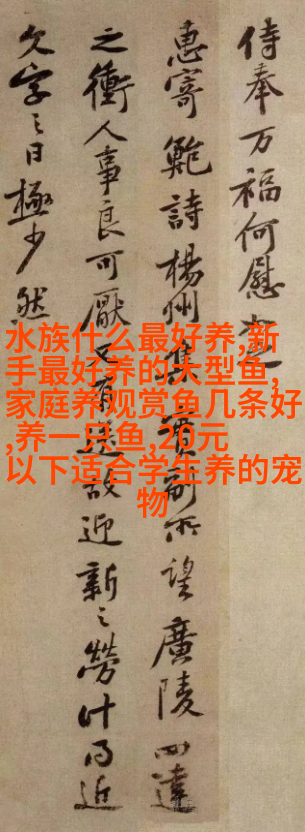 侍奉万福何慰
惠寄鮑詩楊州集實副所望廣陵四達
之衝人事良可厭又有送故迎新之勞計日近
欠字之日極少然
水族什么最好养,新
手最好养的大型鱼,
家庭养观赏鱼几条好
,养一只鱼,200元
以下适合学生养的宠
物